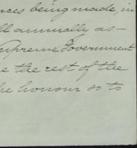 ces being made, in
ll annually as-
Supreme Government
e the rest of the
he honour so to